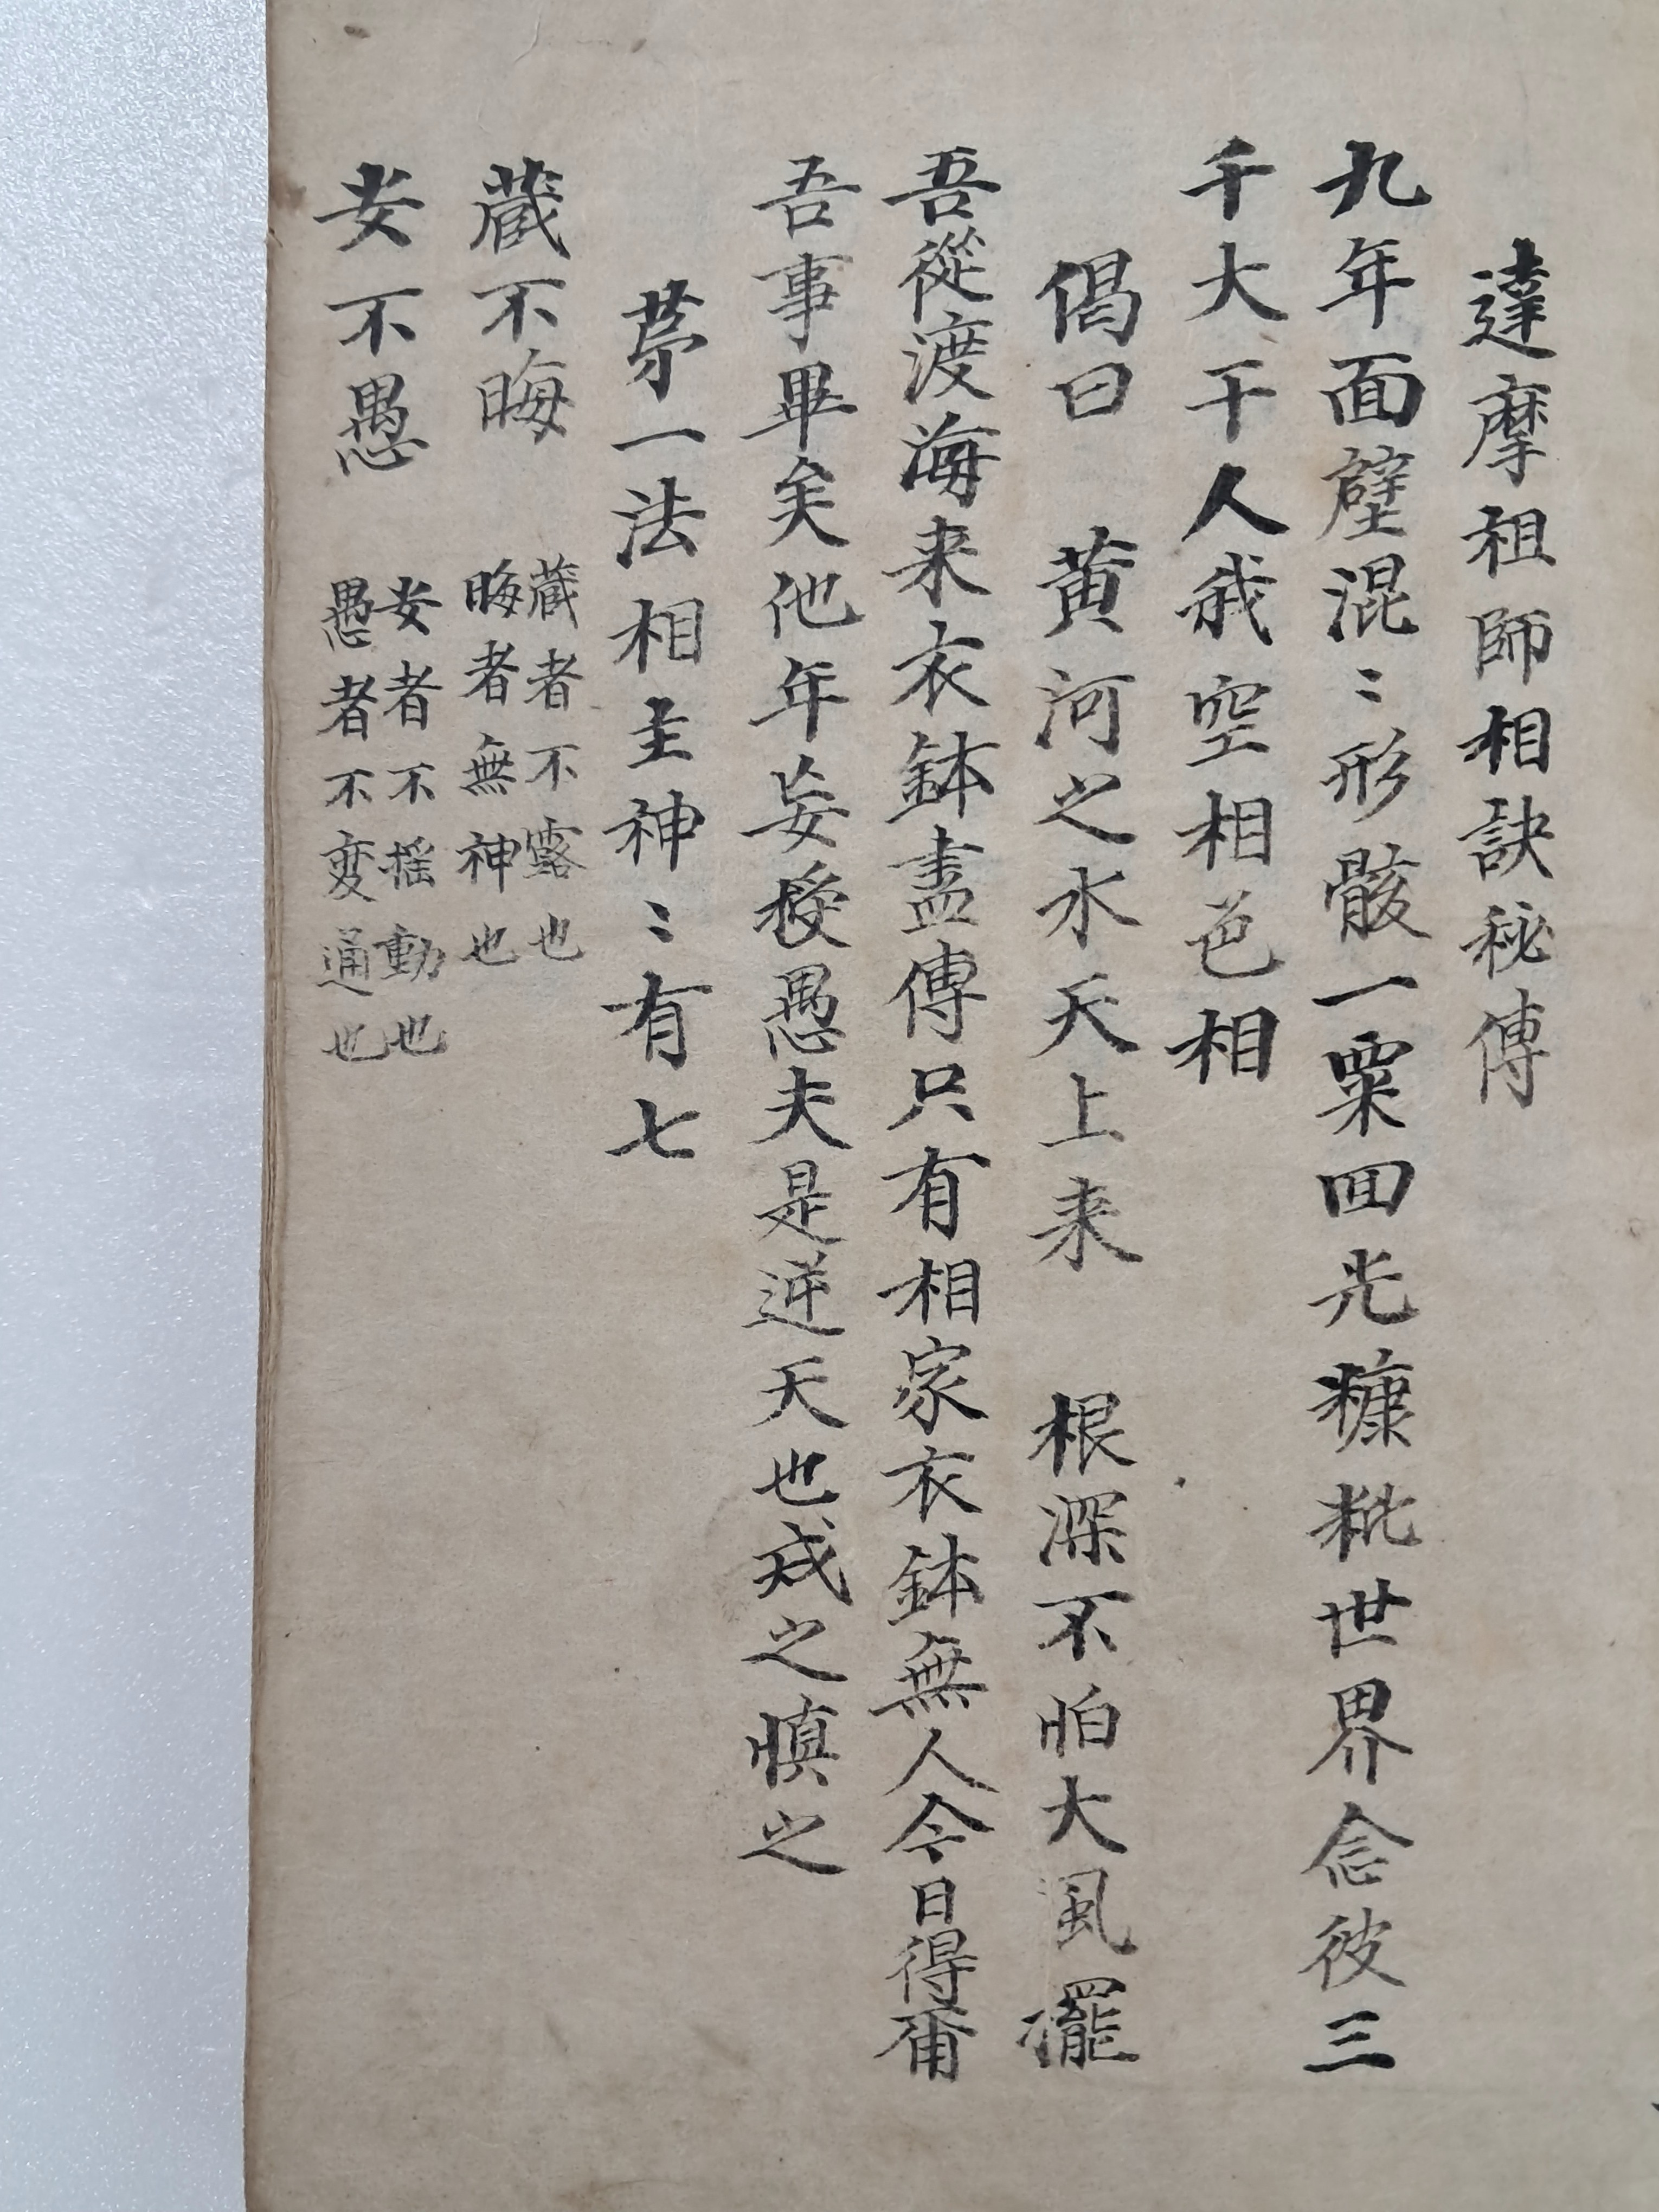 達摩祖師相訣秘傳
九年面壁混〻形骸一粟囬光糠粃世界念彼三
千大千人我空相色相
偈曰　黄河之水天上来　根深不怕大風擺
吾從渡海来衣鉢盡傳只有相家衣鉢無人今日得甫
吾事畢矣他年妄授愚夫是逆天也戒之慎之
苐一法相主神〻有七
藏不晦
藏者不露也
晦者無神也
安不愚
安者不摇動也
愚者不変通也